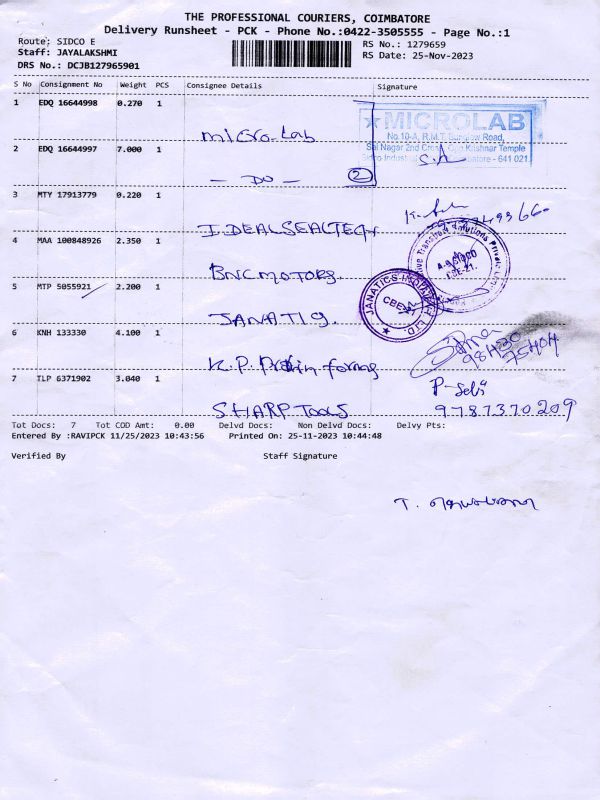 THE PROFESSIONAL COURIERS, COIMBATORE
Delivery Runsheet - PCK - Phone No.:0422-3505555 - Page No.:1
Route: SIDCO E
RS No.: 1279659
Staff: JAYALAKSHMI
RS Date: 25-Nov-2023
DRS No.: DCJB127965901
S No Consignment No Weight PCS Consignee Details Signature
1 EDQ 16644998 0.270 1
micro-Lab
MICROLAB
No.10-A, R.M.T. Bungalow Road,
Sai Nagar 2nd Cross,
Temple
Sidco Industrial
Coimbatore - 641 021.
2 EDQ 16644997 7.000 1
- DO - 2
3 MTY 17913779 0.220 1
IDEALSEALTECH
4 MAA 100848926 2.350 1
BNC MOTORS.
Solutions Private
5 MTP 5055921 2.200 1
JANATIS.
JANATICS INDIA PVT LTD.
CBE-21
6 KNH 133330 4.100 1
K.P. Protin forms
98430
75404
7 TLP 6371902 3.040 1
SHARP TOOLS
P-Selvi
9787370209
Tot Docs: 7 Tot COD Amt: 0.00 Delvd Docs: Non Delvd Docs: Delvy Pts:
Entered By :RAVIPCK 11/25/2023 10:43:56 Printed On: 25-11-2023 10:44:48
Verified By Staff Signature